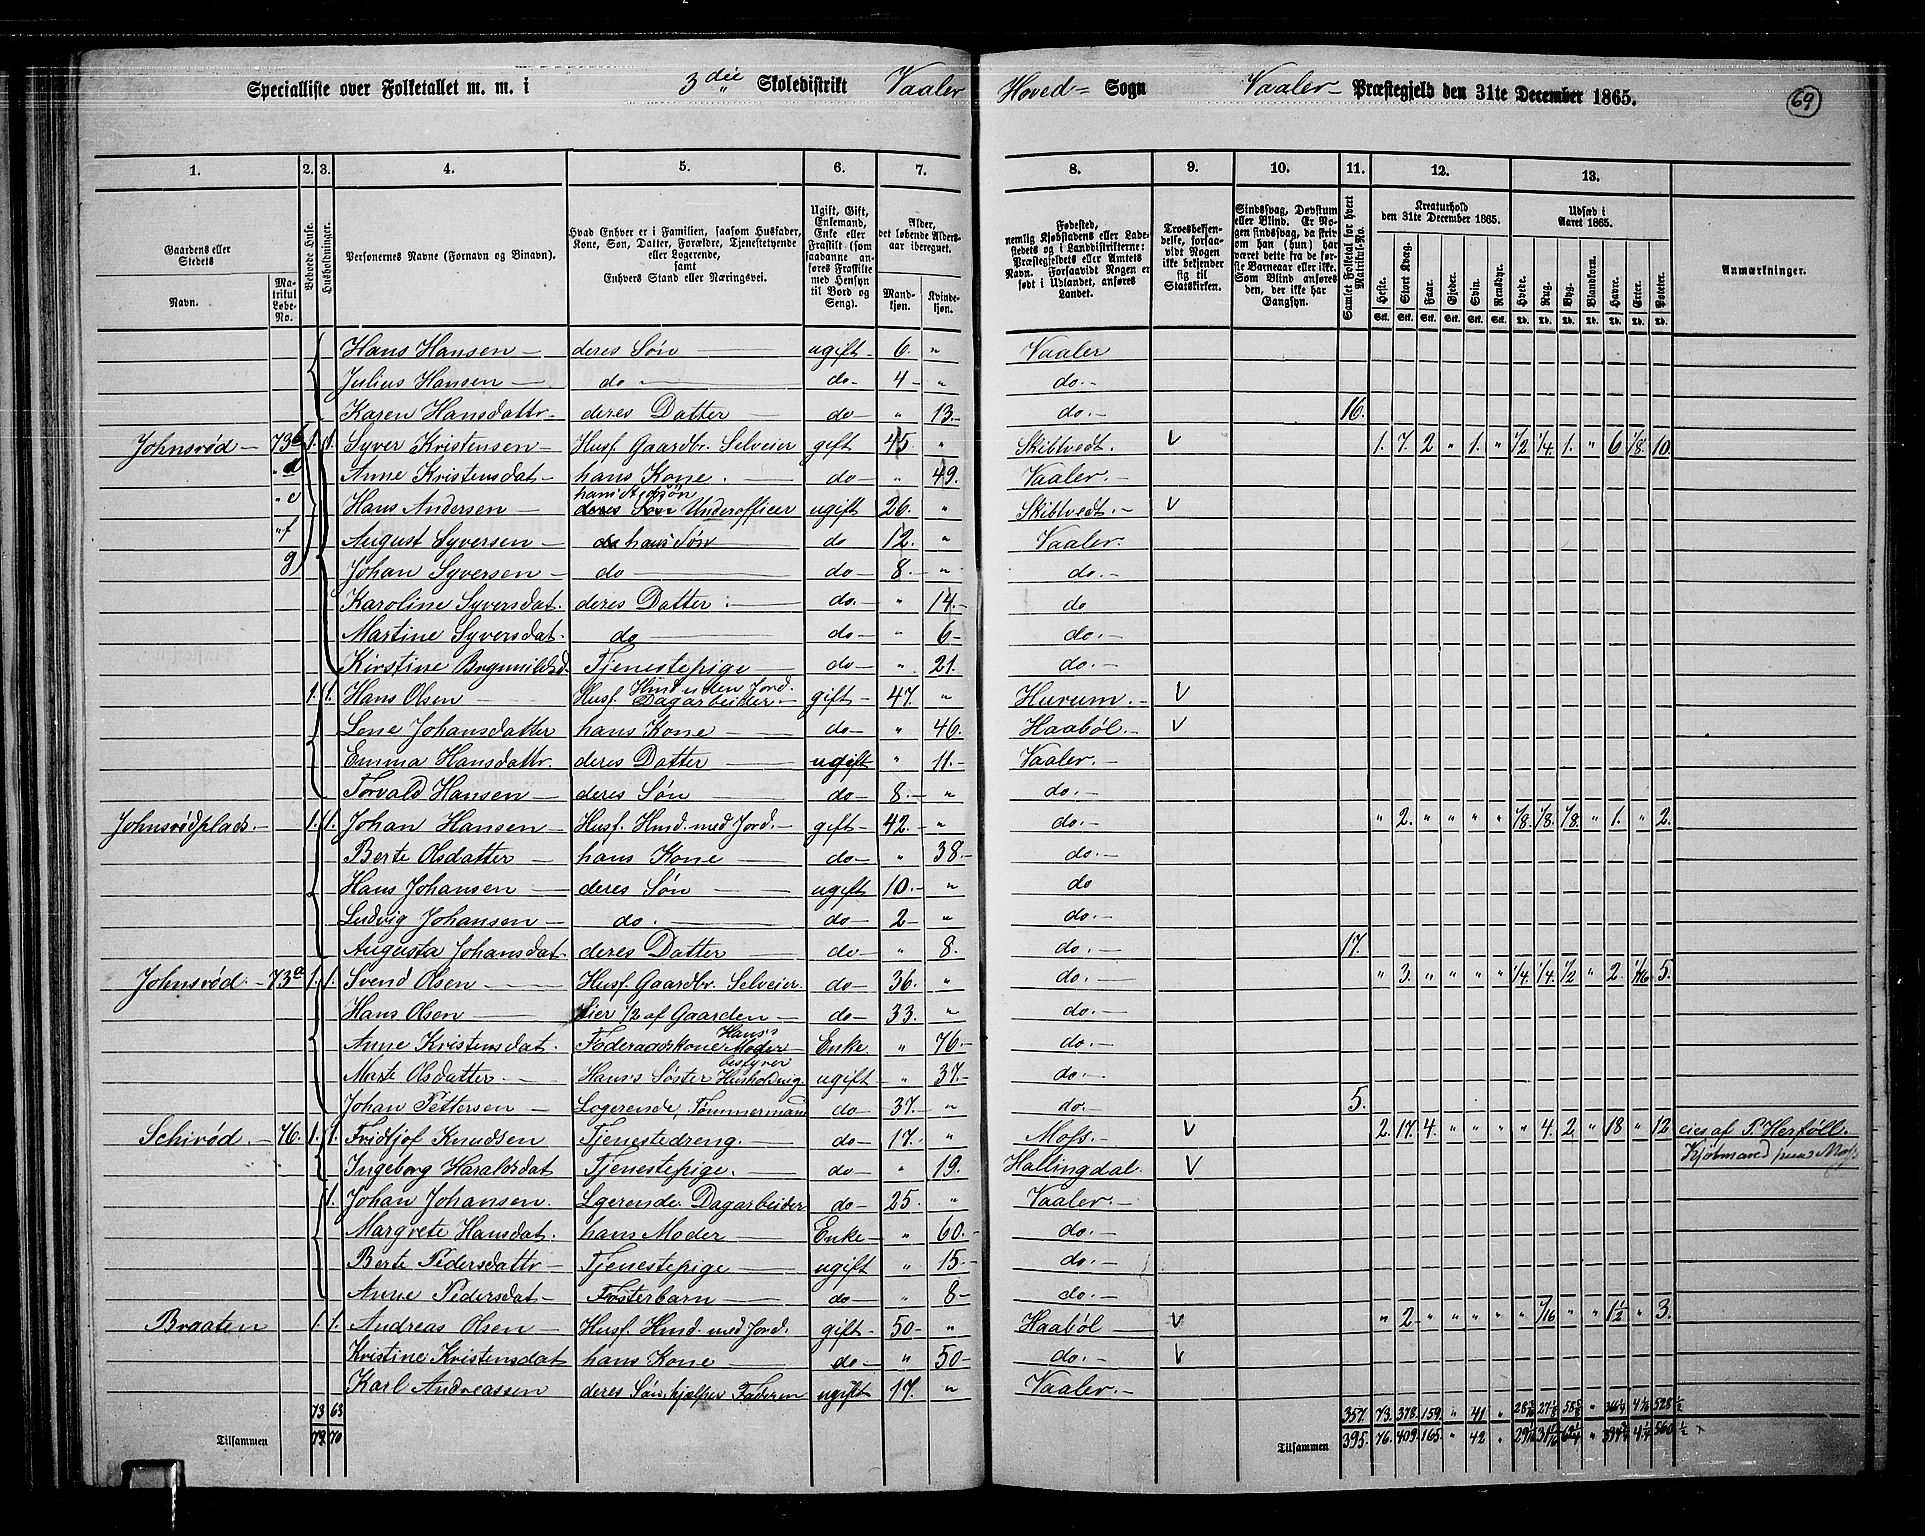 Specialliste over Folketallet m. m. i 3die Skoledistrikt Vaaler Hoved= Sogn Vaaler Præstegjeld den 31te December 1865. 69
1. 2. 3. 4. 5. 6. 7. 8. 9. 10. 11. 12. 13.
Gaardens eller Stedets
Navn.
Matrikul Løbe-No.
Beboede Huse.
Husholdninger.
Personernes Navne (Fornavn og Binavn).
Hvad Enhver er i Familien, saasom Husfader, Kone, Søn, Datter, Forældre, Tjenestetyende eller Logerende, samt Enhvers Stand eller Næringsvei.
Ugift, Gift, Enkemand, Enke eller Fraskilt (som saadanne anføres Fraskilte med Hensyn til Bord og Seng).
Alder, det løbende Alders-aar iberegnet.
Mand-kjøn.
Kvinde-kjøn.
Fødested, nemlig Kjøbstadens eller Ladestedets og i Landdistrikterne: Præstegjeldets eller Amtets Navn. Forsaavidt Nogen er født i Udlandet, anføres Landet.
Troesbekjendelse, forsaavidt Nogen ikke bekjender sig til Statskirken.
Sindssvag, Døvstum eller Blind. Er Nogen sindssvag, da skrives om han (hun) har været dette fra de første Barneaar eller ikke. Som Blind anføres den, der ikke har Gangsyn.
Samlet Folketal for hvert Matrikul-No.
Kreaturhold den 31te December 1865.
Heste. Stort Kvæg. Faar. Gjeder. Svin. Rensdyr.
Udsæd i Aaret 1865.
Hvede. Rug. Byg. Blandkorn. Havre. Erter. Poteter.
Anmærkninger.
Hans Hansen — deres Søn — ugift 6 " Vaaler
Julius Hansen — do — do 4 " do.
Karen Hansdattr — deres Datter — do " 13 do. 16.
Johnsrød 73 1. 1. Syver Kristensen — Husf. Gaardbr. Selveier gift 45 " Skibtvedt. V 1. 7. 2 " 1. " 1/2 1/4 1. " 6 1/8 10.
" d Anne Kristensdat — hans Kone. do " 49. Vaaler
" e Hans Andersen — Underofficer ugift 26. " Skibtvedt. V
" f August Syversen — hans Søn do 12. " Vaaler.
g Johan Syversen — do — do 8. " do.
Karoline Syversdat. deres Datter — do. " 14. do
Martine Syversdat. do — do " 6 do.
Kirstine Tjenestepige — do " 21. do.
1. 1. Hans Olsen — Husf. Hmd uden Jord. Dagarbeider gift 47. " Hurum. V
Lene Johansdatter hans Kone — do " 46. Haabøl. V
Emma Hansdattr. deres Datter — ugift " 11. Vaaler.
Torvald Hansen — deres Søn — do 8. " do.
Johnsrødplads. 1. 1. Johan Hansen — Husf. Hmd. med Jord. gift 42. " do. " 2. " " " " 1/8. 1/8. 1/8 " 1. " 2.
Berte Olsdatter — hans Kone — do " 38. do.
Hans Johansen — deres Søn — ugift 10. " do
Ludvig Johansen — do. — do 2 " do.
Augusta Johansdat. deres Datter — do " 8. do. 17.
Johnsrød 73a 1. 1. Svend Olsen — Husf. Gaardbr. Selveier. do 36. " do. " 3. " " " " 1/4. 1/4. 1/2 " 2. 1/16 5.
Hans Olsen — Eier 1/2 af Gaarden — do 33. " do.
Anne Kristensdat. Føderaadskone Hans's Moder Enke. " 76. do.
Marte Olsdatter. Hans's Søster bestyrer Husholdnig. ugift " 37. do.
Johan Pettersen — Logerende, Tømmermand do 37. " do. 5.
Schirød. 76. 1. 1. Fridtjof Knudsen Tjenestedreng. do 17. " Moss. V 2. 17. 4. " " " " 4. 2. " 18 " 12 eies af P. Herføll.
Ingeborg Haraldsdat Tjenestepige. do " 19. Hallingdal. V Kjøbmand paa Moss
1. Johan Johansen. Lgerende. Dagarbeider do 25. " Vaaler.
Margrete Hansdat. hans Moder — Enke " 60. do.
Berte Pedersdattr Tjenestepige — ugift " 15 do.
Anne Pedersdat — Fosterbarn — do " 8 do.
Braaten 1. 1. Andreas Olsen — Husf. Hmd. med Jord. gift 50 " Haabøl V " 2 " " " " " 1/16 " " 1 1/2 " 3.
Kristine Kristensdat hans Kone — do " 50 do. V
Karl Andreassen deres Søn. hjælper Faderen ugift 17. " Vaaler.
73 63 357. 73. 378. 159. " 41 "
Tilsammen 70 Tilsammen 395. 76. 409. 165. " 42 "